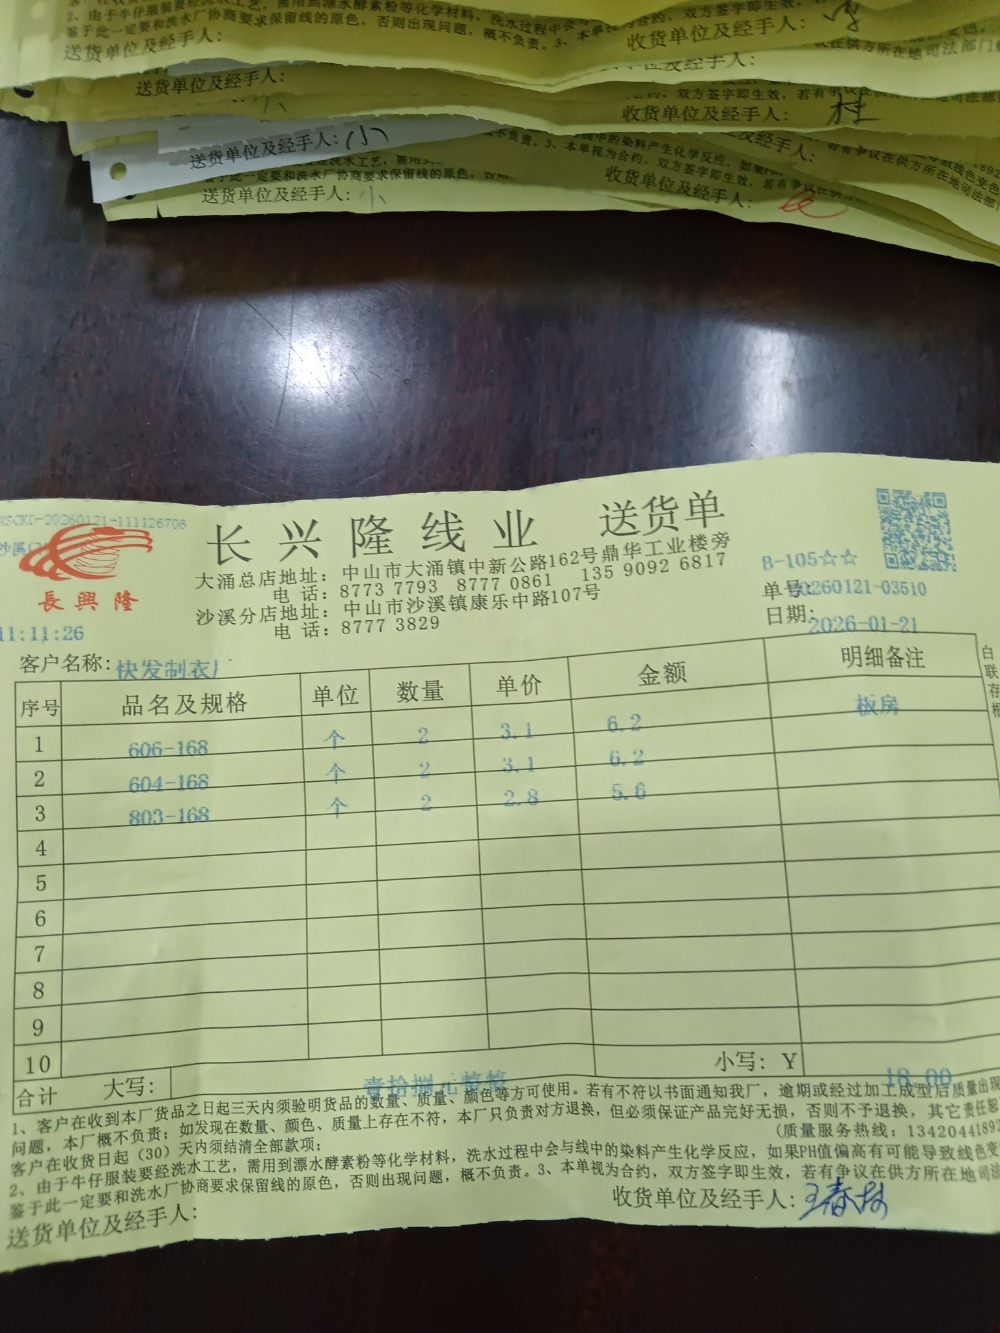 2、由于牛仔服装要经洗水工艺，需用到漂水酵素粉等化学材料，洗水过程中会
鉴于此一定要和洗水厂协商要求保留线的原色，否则出现问题，概不负责。3、本单视为合约，双方签字即生效，若有争议在供方所在地司法部门
送货单位及经手人：
收货单位及经手人：
送货单位及经手人：
双方签字即生效，若有争
收货单位及经手人：
送货单位及经手人：小
送货单位及经手人：小
收货单位及经手人：
长兴隆线业 送货单
長興隆
大涌总店地址：中山市大涌镇中新公路162号鼎华工业楼旁
电 话：8773 7793 8777 0861 135 9092 6817
沙溪分店地址：中山市沙溪镇康乐中路107号
电 话：8777 3829
B-105☆☆
单号：20260121-03510
日期：2026-01-21
11:11:26
客户名称：快发制衣厂
序号 品名及规格 单位 数量 单价 金额 明细备注
1 606-168 个 2 3.1 6.2 板房
2 604-168 个 2 3.1 6.2
3 803-168 个 2 2.8 5.6
4
5
6
7
8
9
10
合计 大写：壹拾捌元整 小写：Y 18.00
1、客户在收到本厂货品之日起三天内须验明货品的数量、质量、颜色等方可使用。若有不符以书面通知我厂，逾期或经过加工成型后质量出现
问题，本厂概不负责；如发现在数量、颜色、质量上存在不符，本厂只负责对方退换，但必须保证产品完好无损，否则不予退换，其它责任恕
客户在收货日起（30）天内须结清全部款项；
(质量服务热线：1342044189
2、由于牛仔服装要经洗水工艺，需用到漂水酵素粉等化学材料，洗水过程中会与线中的染料产生化学反应，如果PH值偏高有可能导致线色变
鉴于此一定要和洗水厂协商要求保留线的原色，否则出现问题，概不负责。3、本单视为合约，双方签字即生效，若有争议在供方所在地司法
送货单位及经手人：
收货单位及经手人：王春林